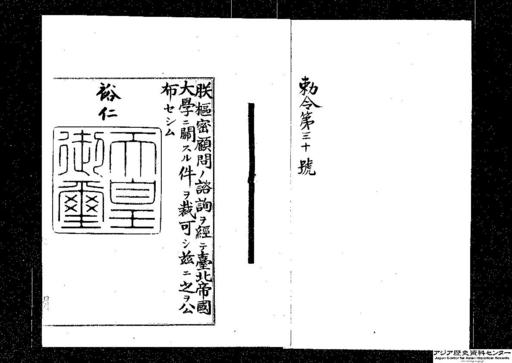 勅令第三十號
朕樞密顧問ノ諮詢ヲ經テ臺北帝國
大學ニ關スル件ヲ裁可シ茲ニ之ヲ公
布セシム
裕仁
天皇
御璽
アジア歴史資料センター
Japan Center for Asian Historical Records